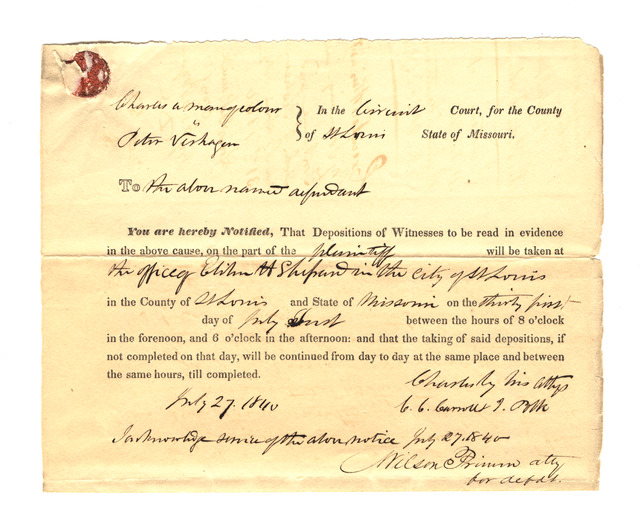 Charles a man of colour
vs
Peter Verhagen
In the Circuit Court, for the County
of St Louis State of Missouri.
To the above named defendant
You are hereby Notified, That Depositions of Witnesses to be read in evidence
in the above cause, on the part of the plaintiff will be taken at
the office of Elihu H Shepard in the City of St Louis
in the County of St Louis and State of Missouri on the thirty first
day of July Inst between the hours of 8 o'clock
in the forenoon, and 6 o'clock in the afternoon: and that the taking of said depositions, if
not completed on that day, will be continued from day to day at the same place and between
the same hours, till completed.
Charles by his attys
July 27. 1840 C. C. Carroll & T. Polk
I acknowledge service of the above notice July 27. 1840
Wilson Primm atty
for defdt.